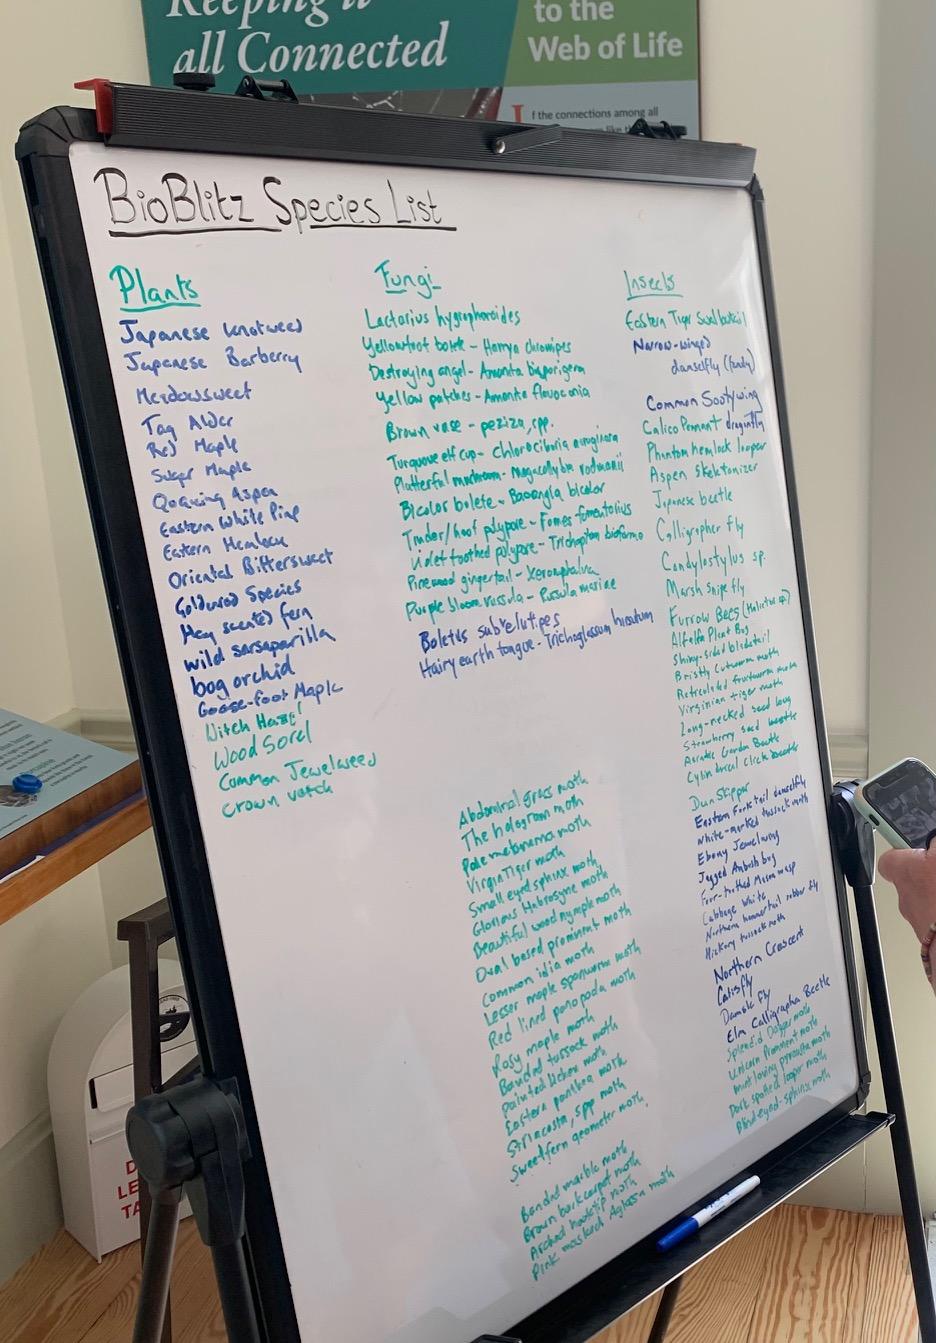 Keeping it
all Connected
to the
Web of Life
f the connections among all
BioBlitz Species List
Plants
Japanese knotweed
Japanese Barberry
Meadowsweet
Tag Alder
Red Maple
Sugar Maple
Quaking Aspen
Eastern White Pine
Eastern Hemlock
Oriental Bittersweet
Goldenrod Species
Hay scented fern
wild sarsaparilla
bog orchid
Goose-foot Maple
Witch Hazel
Wood Sorel
Common Jewelweed
crown vetch
Fungi
Lactarius hygrophoroides
Yellowfoot bolete - Harrya chromipes
Destroying angel - Amanita bisporigera
Yellow patches - Amanita flavoconia
Brown vase - peziza, spp.
Turquoise elf cup - chlorociboria aeruginosa
Platterful mushroom - Megacollybia rodmanii
Bicolor bolete - Baorangia bicolor
Tinder/hoof polypore - Fomes fomentarius
Violet toothed polypore - Trichaptum biforme
Pinewood gingertail - Xeromphalina
Purple bloom russula - Russula mariae
Boletus subvelutipes
Hairy earth tongue - Trichoglossum hirsutum
Abdominal grass moth
The hologram moth
Pale metanema moth
Virgin Tiger moth
Small eyed sphinx moth
Glorious Habrosyne moth
Beautiful wood nymph moth
Oval based prominent moth
Common idia moth
Lesser maple spanworm moth
Red lined panopoda moth
Rosy maple moth
Banded tussock moth
Painted lichen moth
Eastern panthea moth
Striacosta, spp moth
Sweetfern geometer moth
Banded marble moth
Brown bark carpet moth
Arched hooktip moth
Pink moth
Insects
Eastern Tiger Swallowtail
Narrow-winged
damselfly (family)
Common Sootywing
Calico Pennant dragonfly
Phantom hemlock looper
Aspen skeletonizer
Japanese beetle
Calligrapher fly
Condylostylus sp.
Marsh snipe fly
Furrow Bees (Halictus sp)
Alfalfa Plant Bug
Shiny-sided
Bristly Cutworm moth
Reticulated fruitworm moth
Virginian tiger moth
Long-necked seed bug
Strawberry seed beetle
Asiatic Garden Beetle
Cylindrical click beetle
Dun Skipper
Eastern Forktail damselfly
White-marked tussock moth
Ebony Jewelwing
Jagged Ambush bug
Four-toothed Mason wasp
Cabbage White
Northern hammertail robber fly
Hickory tussock moth
Northern Crescent
Damble fly
Elm Calligrapha Beetle
Splendid Dagger moth
Unicorn Prominent moth
mint loving pyrausta moth
Dark spotted looper moth
Blind eyed-sphinx moth